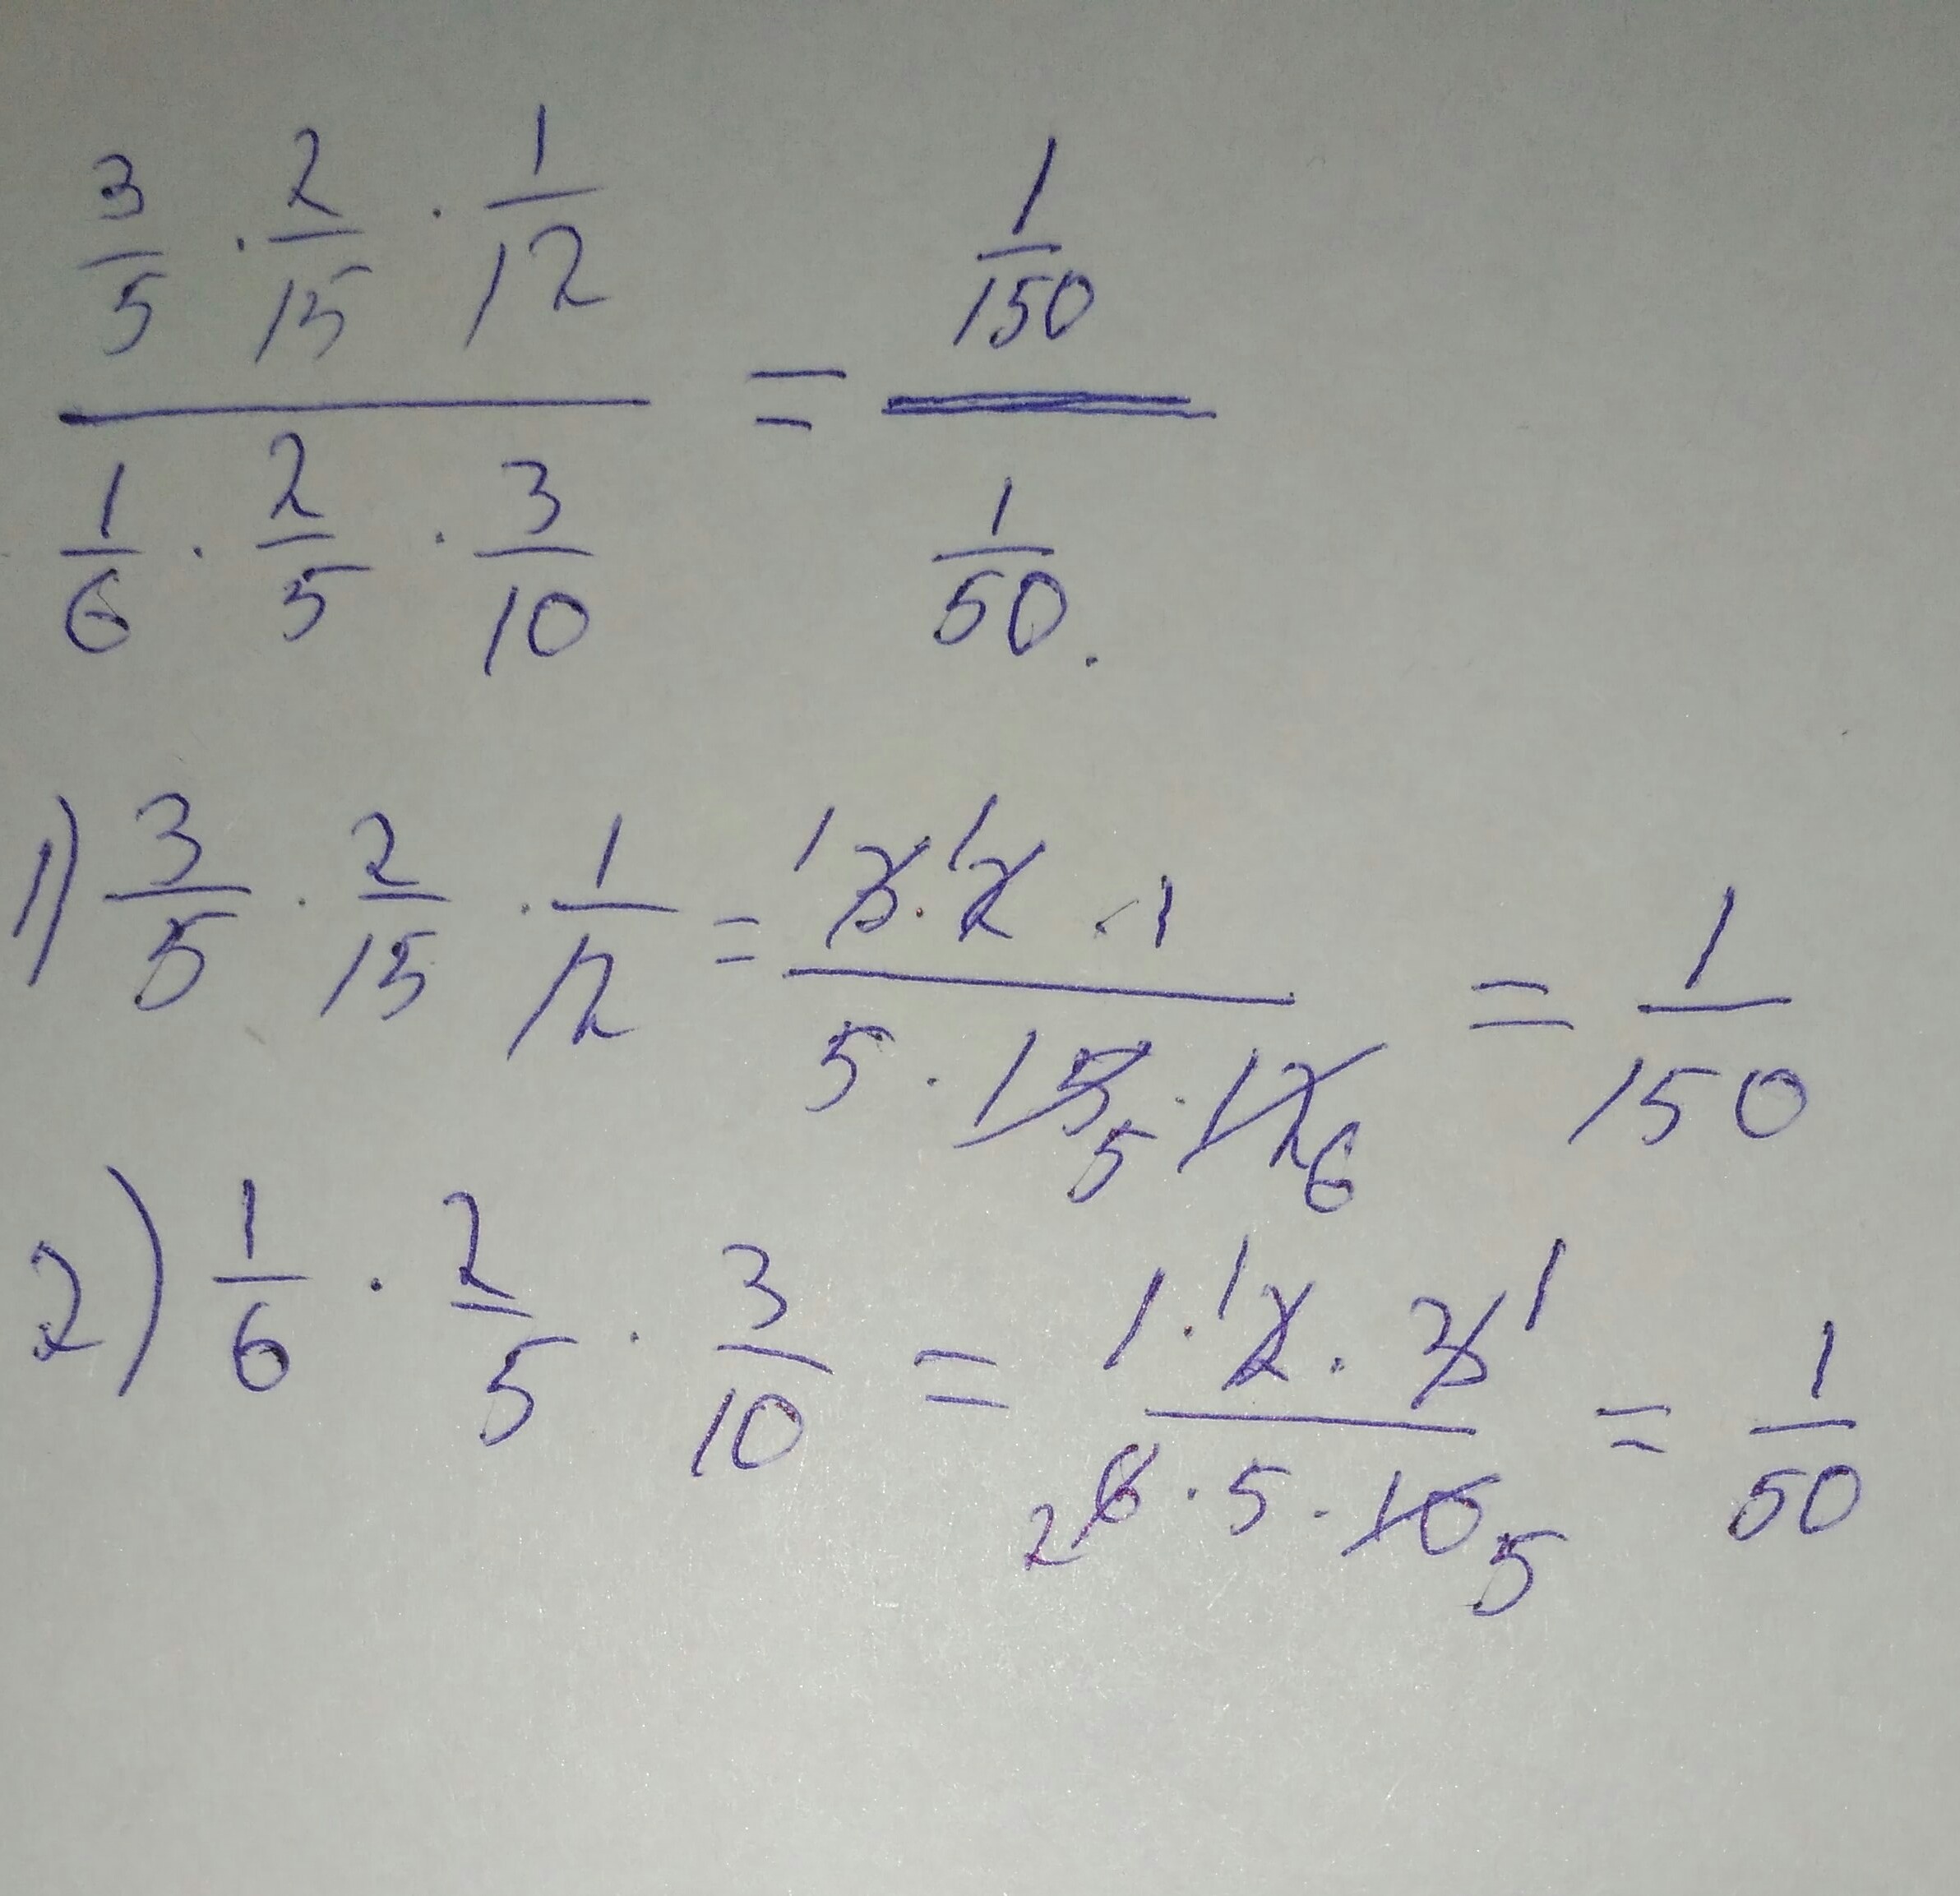 3/5 · 2/15 · 1/12 / 1/6 · 2/5 · 3/10 = 1/150 / 1/50.
1) 3/5 · 2/15 · 1/12 = 1 3 · 1 2 · 1 / 5 · 15 5 · 12 6 = 1/150
2) 1/6 · 2/5 · 3/10 = 1 · 1 2 · 3 1 / 2 6 · 5 · 10 5 = 1/50